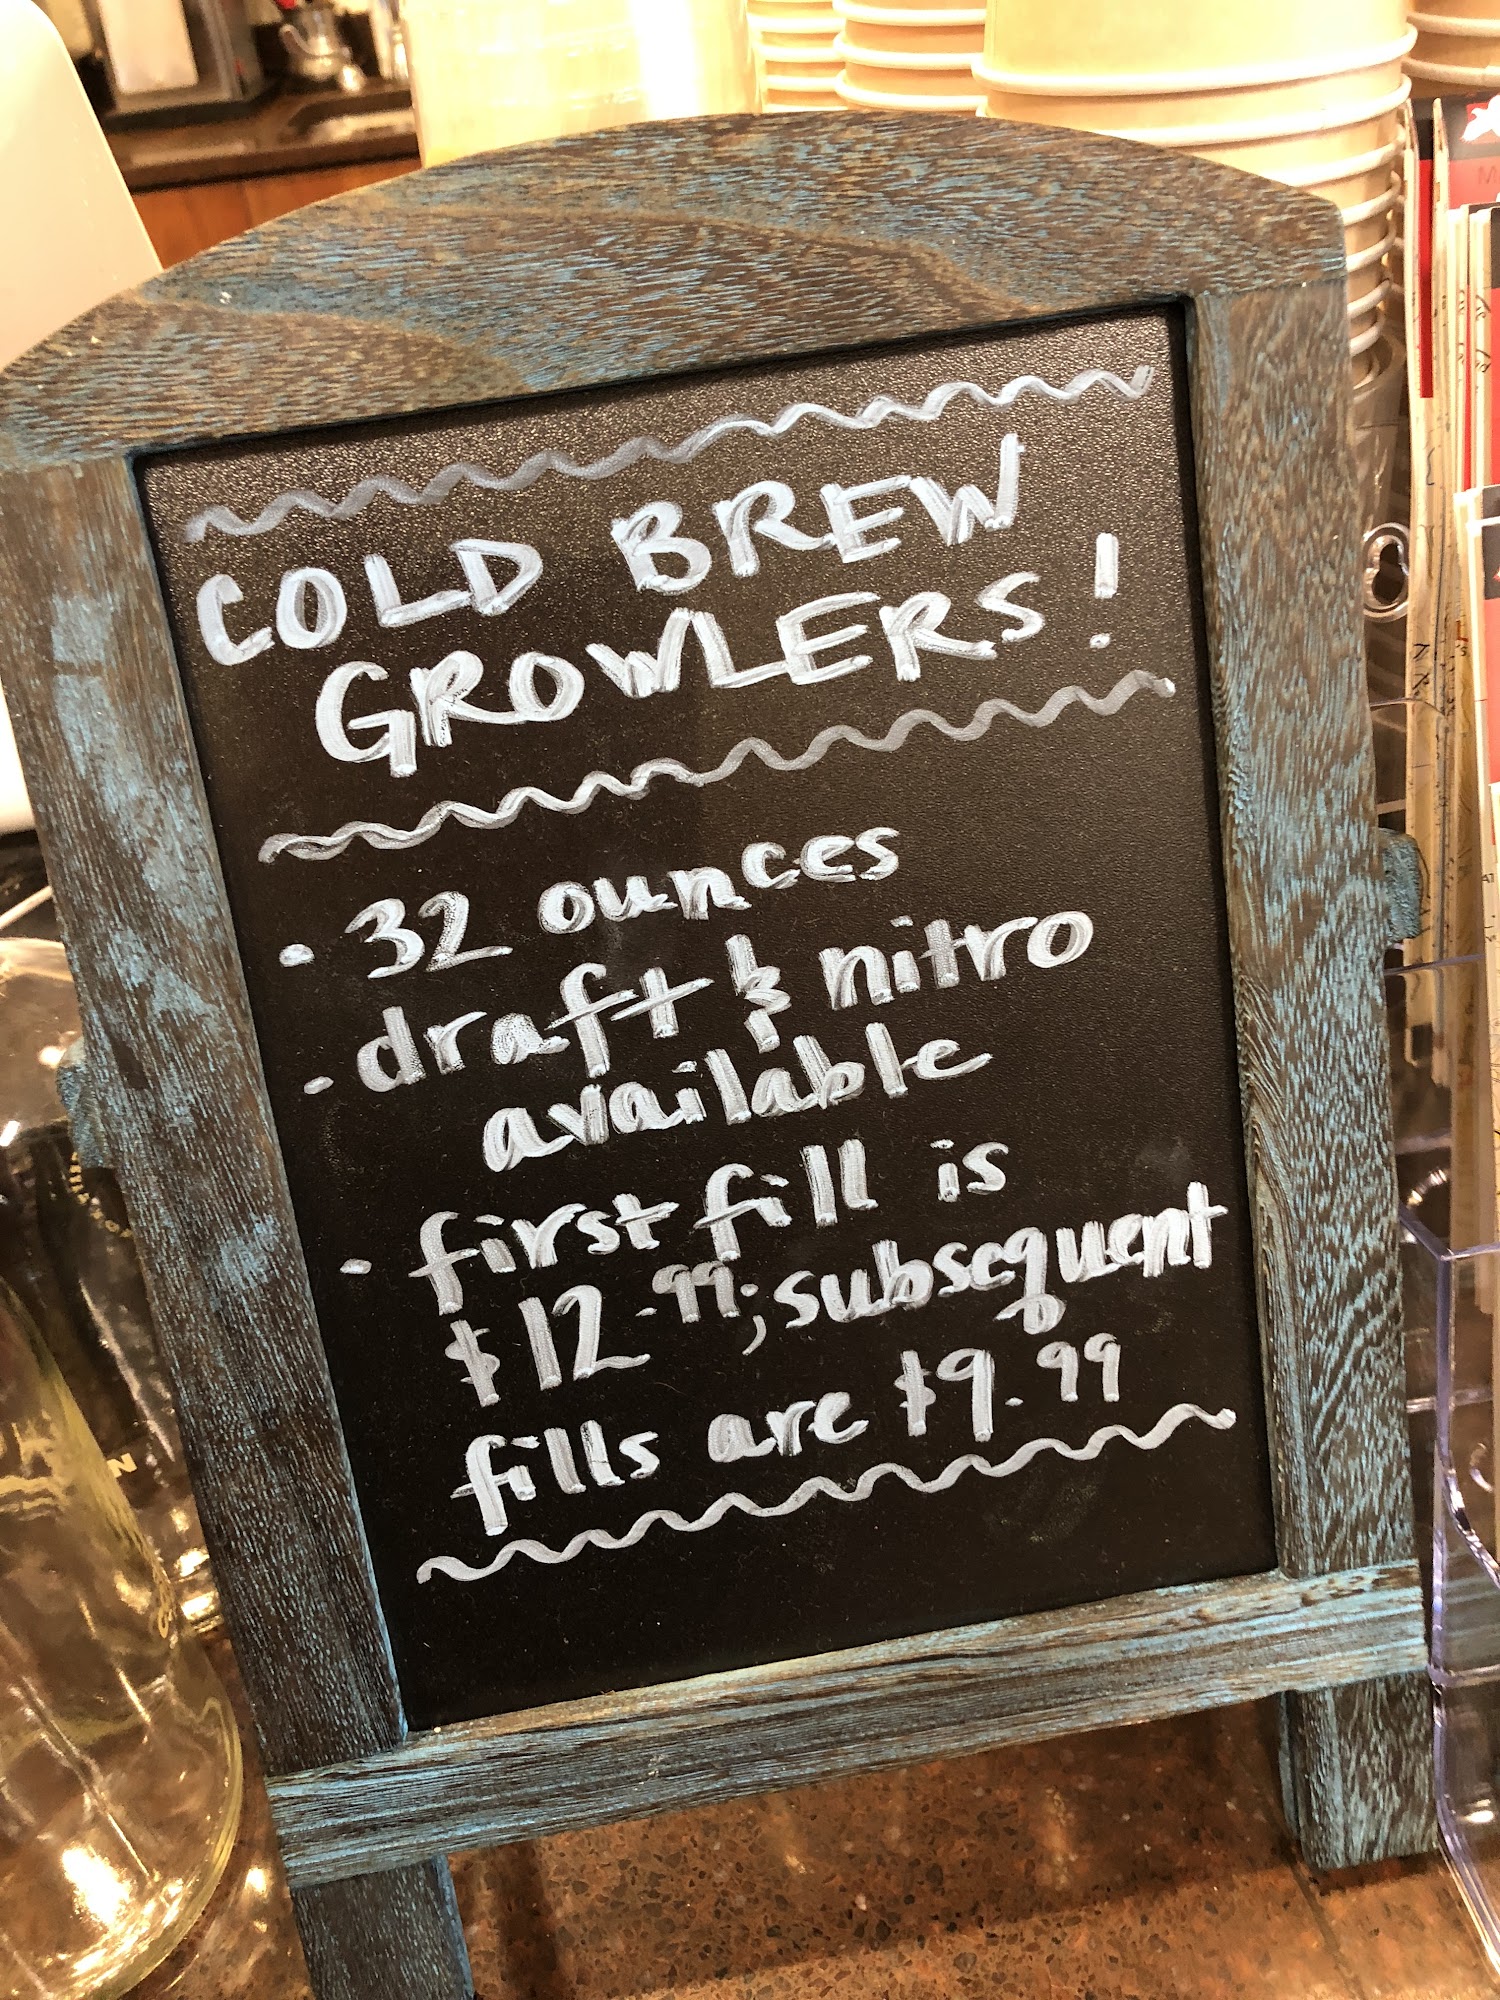 COLD BREW
GROWLERS!
• 32 ounces
• draft & nitro
available
• first fill is
$12.99; subsequent
fills are $9.99